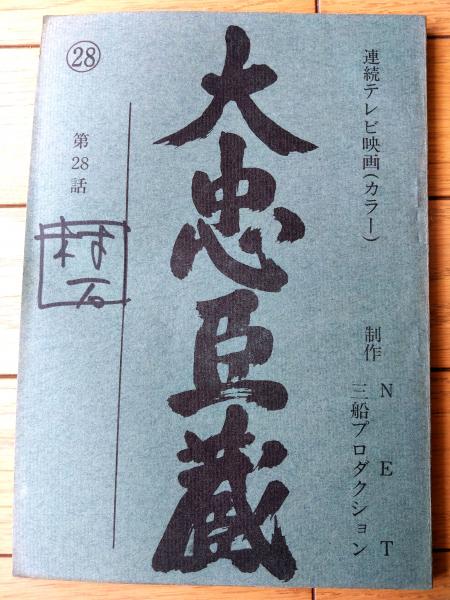 連続テレビ映画(カラー)
制作 NET
三船プロダクション
大忠臣蔵
㉘
第28話
村